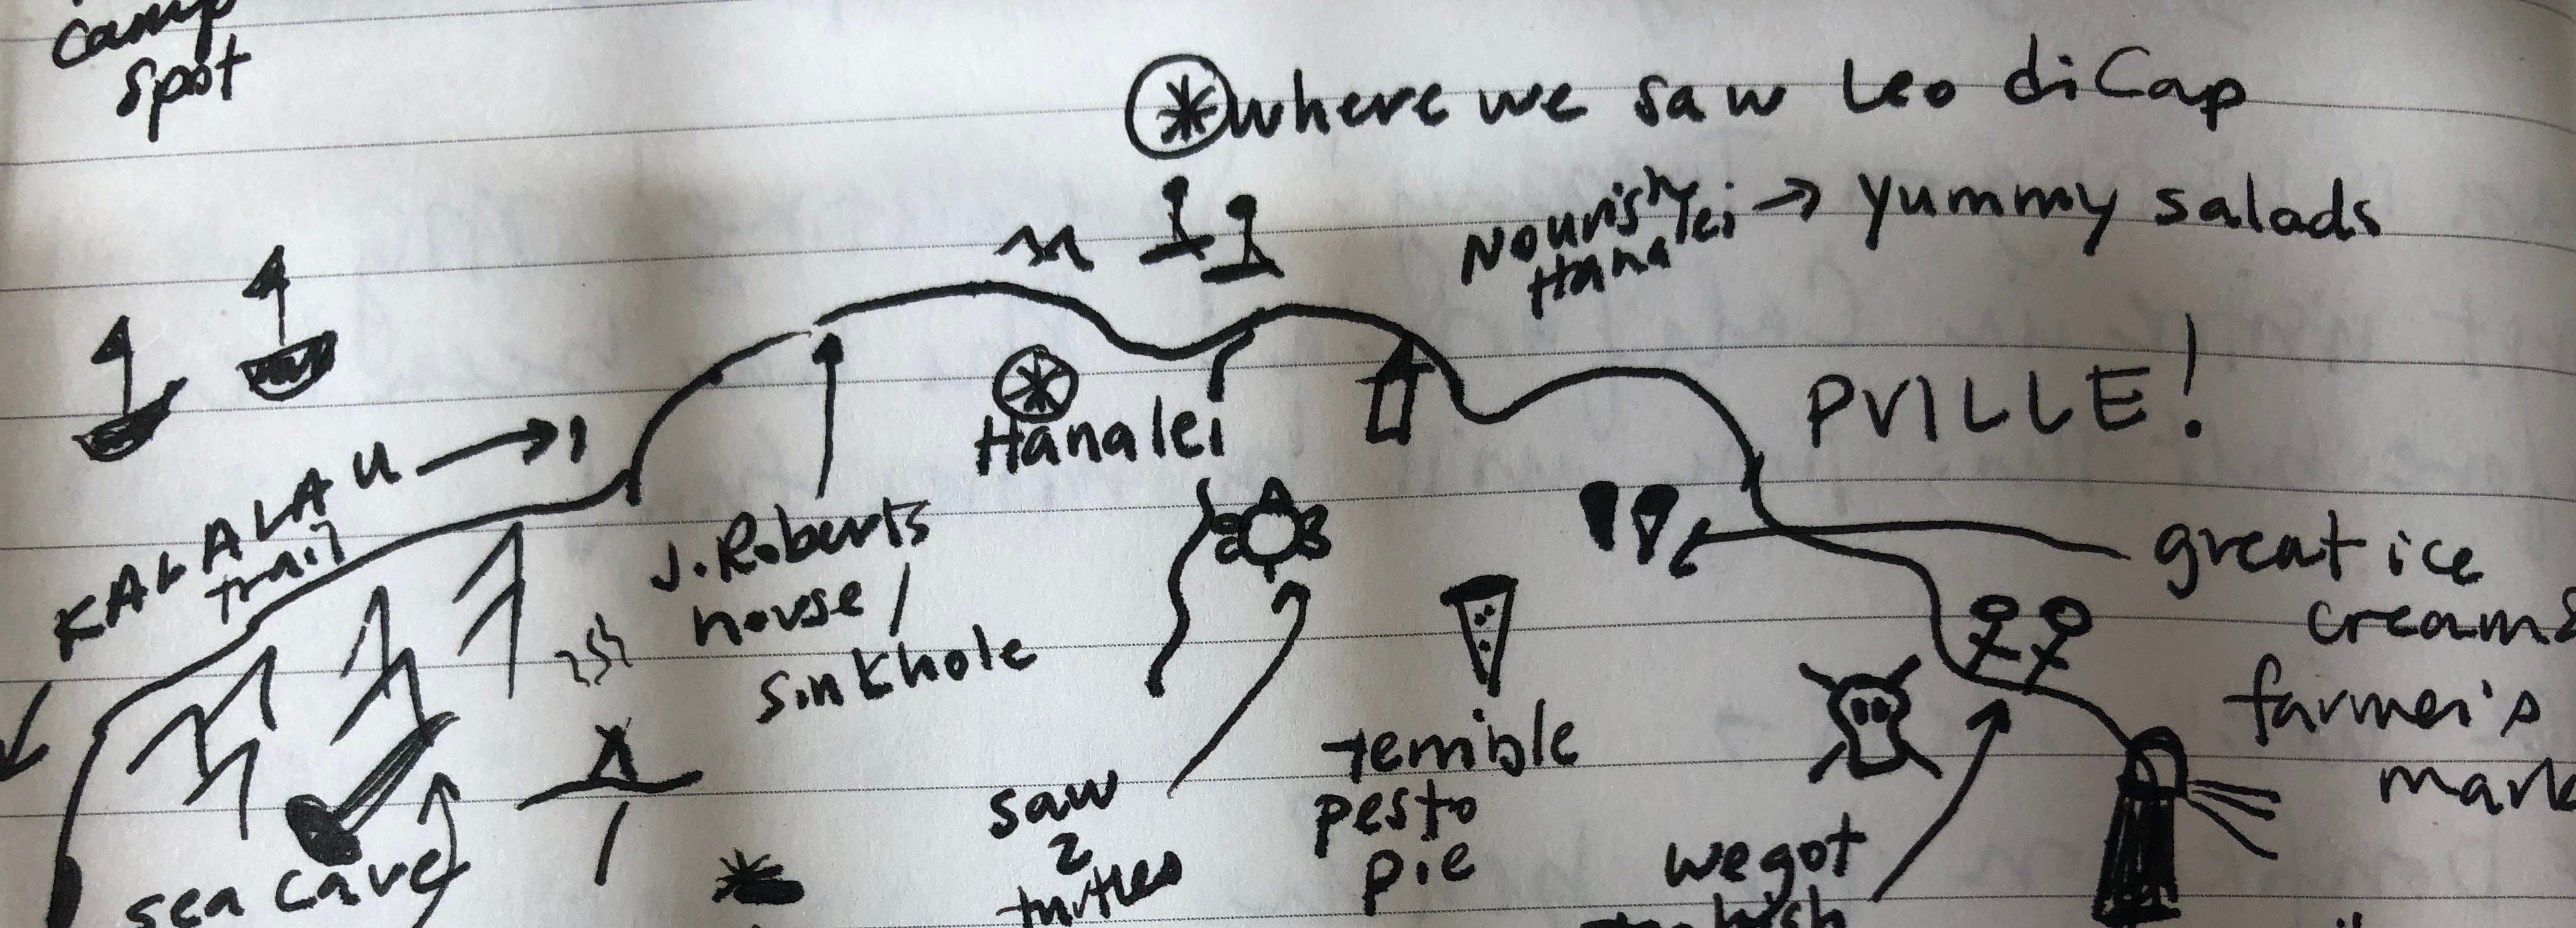 camp
spot
where we saw Leo diCap
Nourish
Hanalei → yummy salads
PVILLE!
KALALAU →
trail
Hanalei
J. Roberts
house/
sinkhole
great ice
cream &
farmer's
mark
terrible
pesto
pie
saw
2
turtles
we got
sea cave